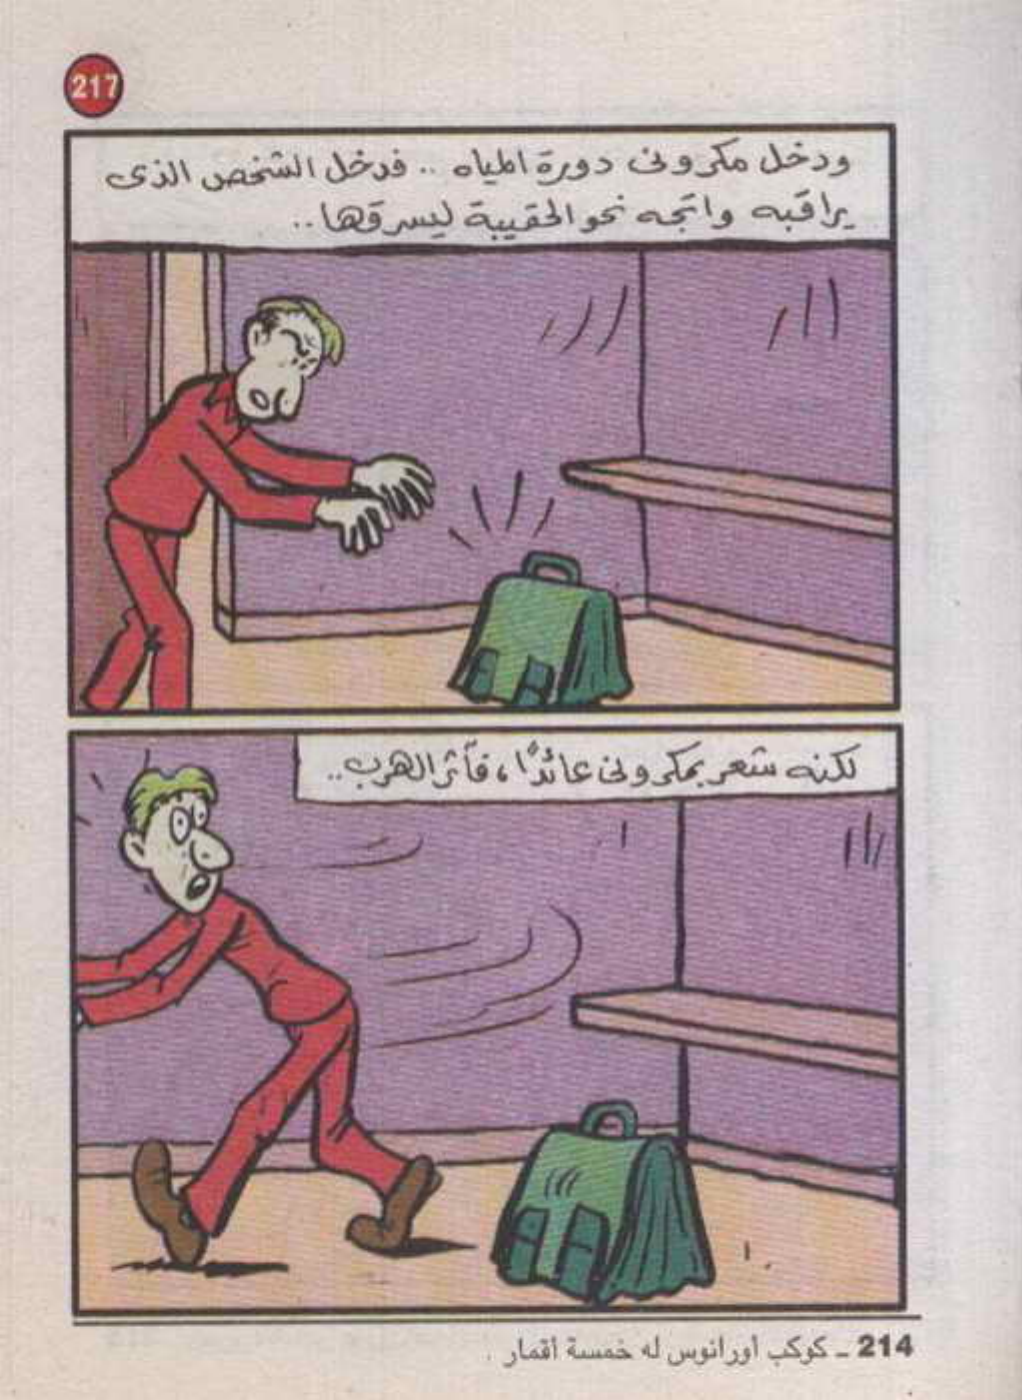 217
ودخل مكرونى دورة المياه .. فدخل الشخص الذى
يراقبه واتجه نحو الحقيبة ليسرقها ..
لكنه شعر بمكرونى عائدًا ، فآثر الهرب ..
214 ـ كوكب أورانوس له خمسة أقمار .